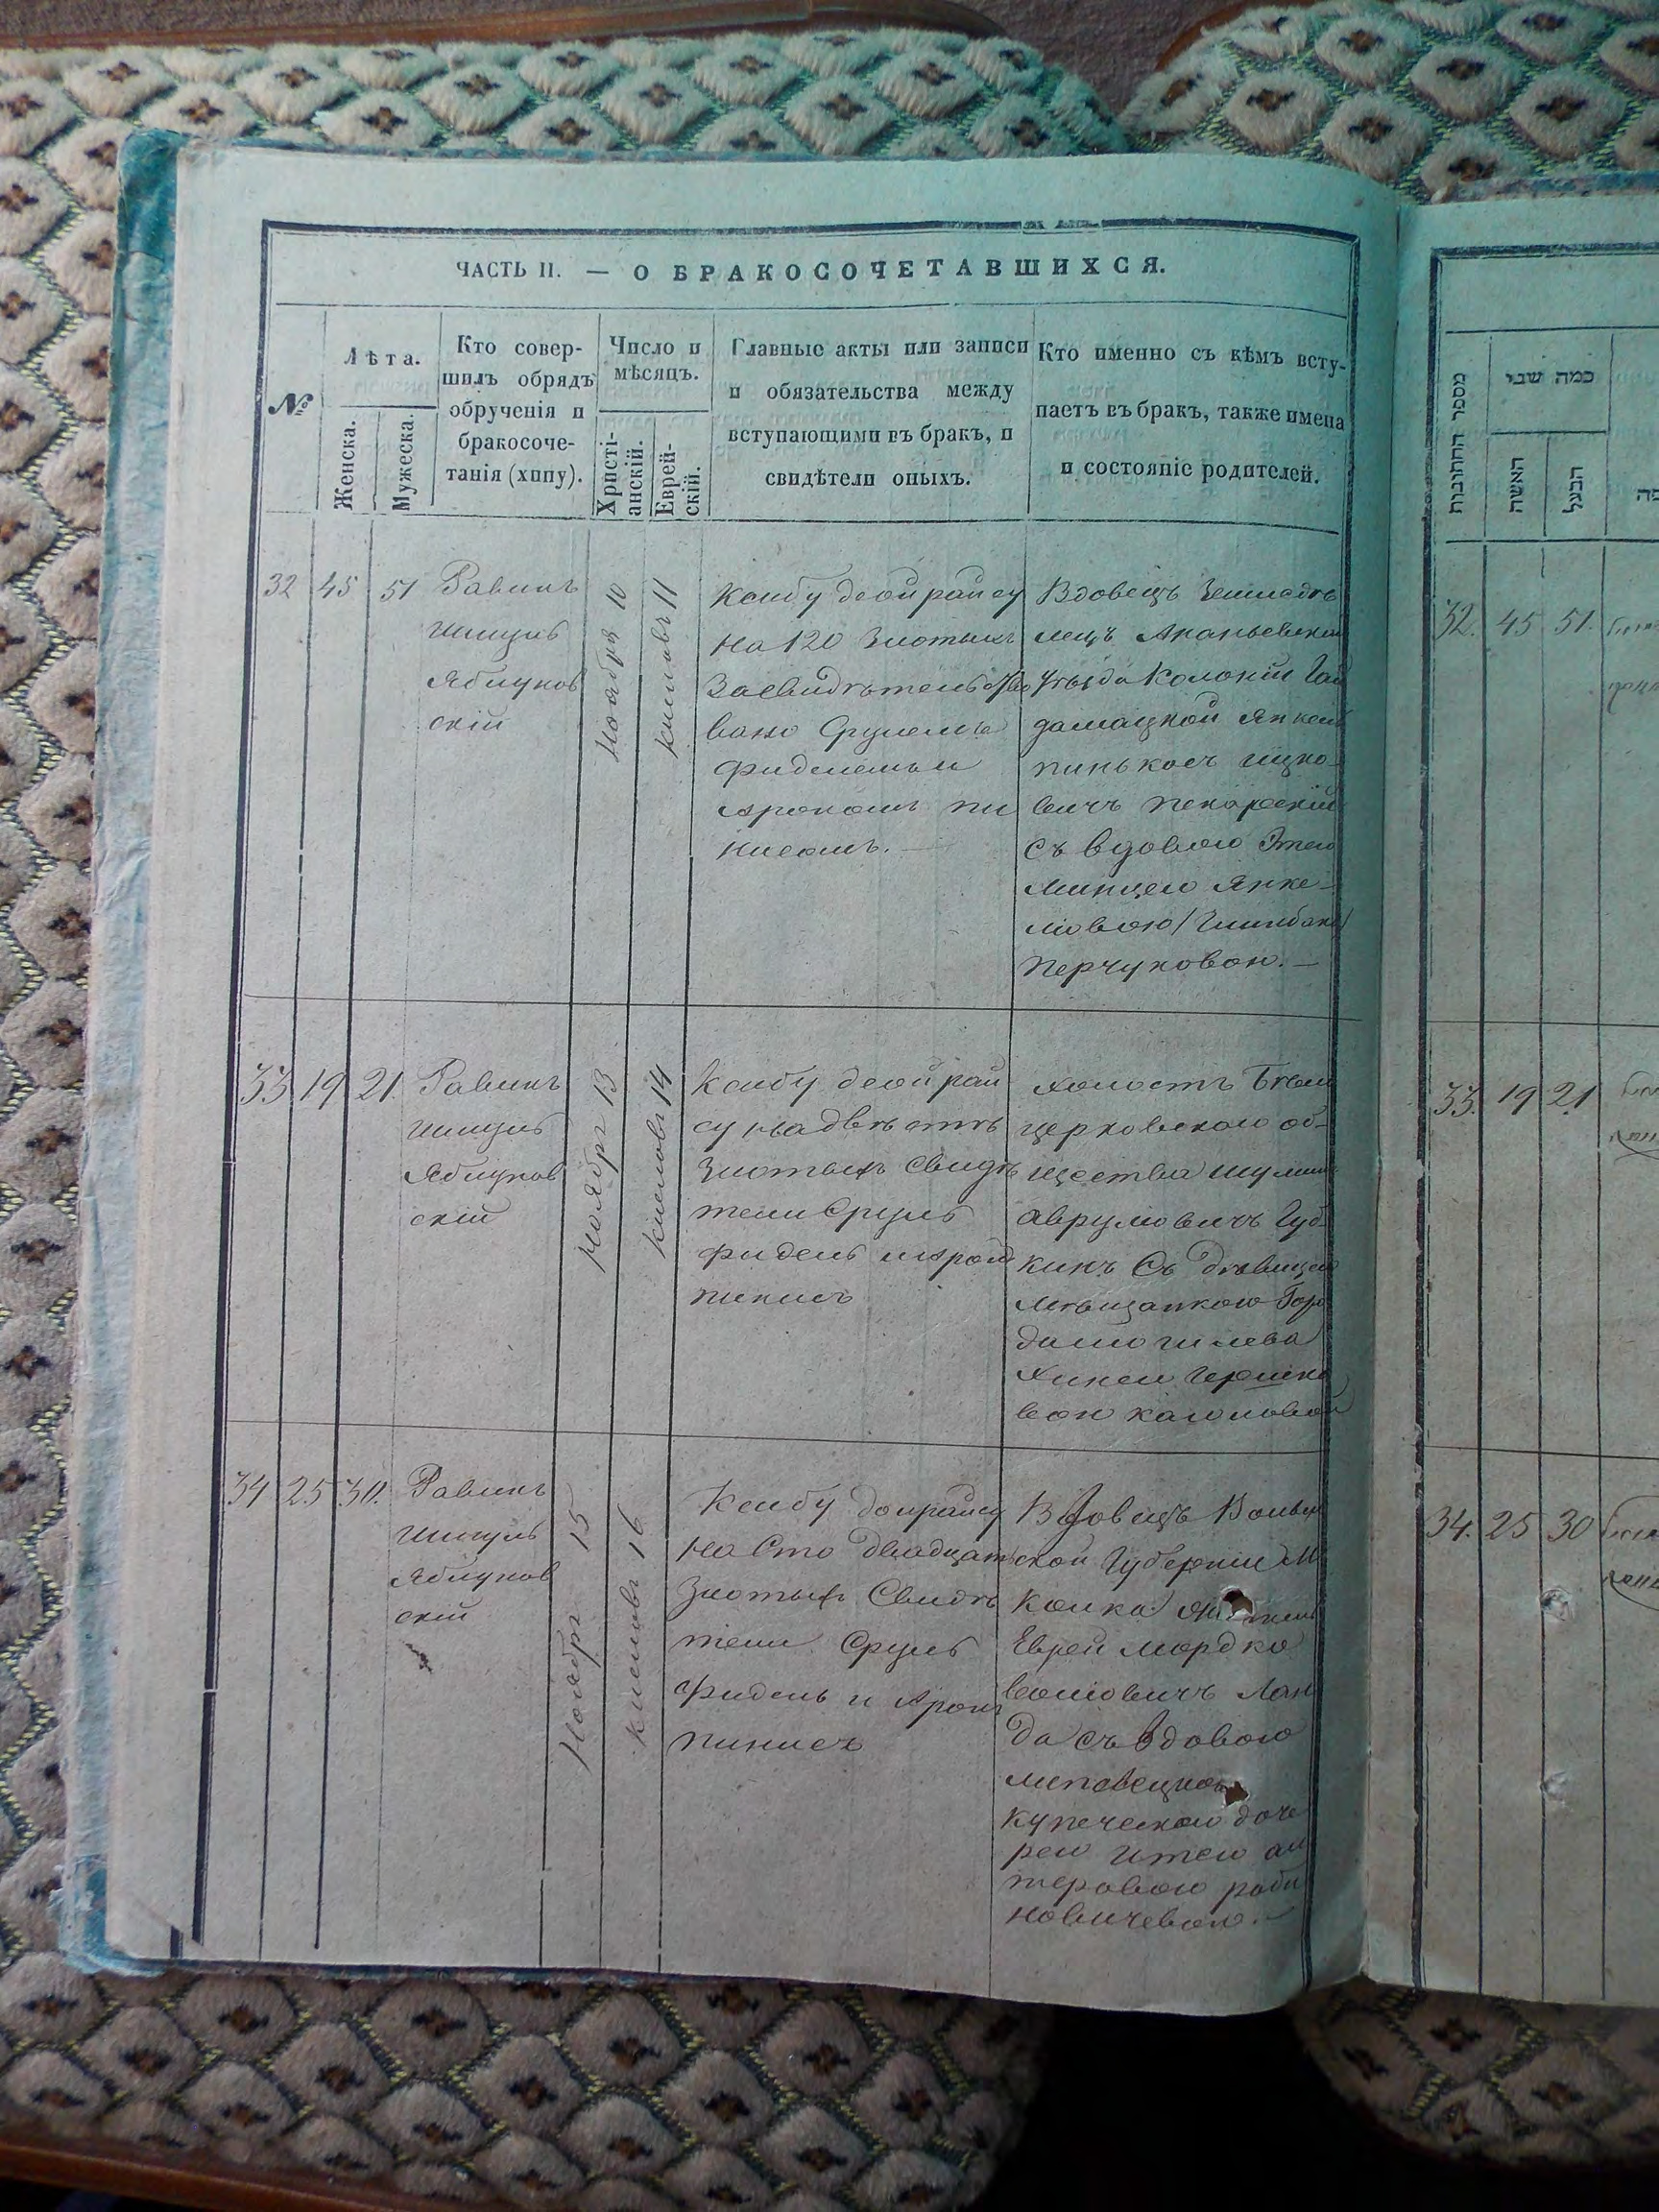 ЧАСТЬ II. — О БРАКОСОЧЕТАВШИХСЯ.
№
Лѣта.
Женска.
Мужеска.
Кто совер-
шилъ обрядъ
обрученія и
бракосоче-
танія (хипу).
Число и
мѣсяцъ.
Христі-
анскій.
Еврей-
скій.
Главные акты или записи
и обязательства между
вступающими въ брак, и
свидѣтели оныхъ.
Кто именно съ кѣмъ всту-
паетъ въ бракъ, также имена
и состояніе родителей.
32 45 51
Равинъ
Шмуль
Яблунов
скій
Ноября 10
кисливъ 11
Ксибу деойрайсу
на 120 Злотыхъ
Засвидѣтельство
вано Срулемъ
Фиделемъ и
Арономъ пи
нисомъ. —
Вдовецъ Земледѣ
лецъ Ананьевскаго
Уѣзда Колоніи Гай
дамацкой Янкель
пинькосъ ицко-
вичъ пекарскій
съ вдовою Этею
Минцею Янке-
лювою
Перчуковою. —
33 19 21.
Равинъ
Шмуль
Яблунов
скій
Ноября 13
кисливъ 14
Ксибу деойрай
су на двѣстѣ
Злотыхъ Свидѣ
тели Сруль
Фидель и Арон
пинисъ
Холостъ Бѣло
церковскаго об-
щества
Аврумовичъ Губ-
кинъ Съ дѣвицею
Мѣщанкою Горо
да могилева
Хинею Гершко
вою
34 25 30.
Равинъ
Шмуль
Яблунов
скій
Ноября 15
кисливъ 16
Ксибу доирайсу
на Сто двадцать
Злотыхъ Свидѣ
тели Сруль
Фидель и Аронъ
пинисъ
Вдовецъ Волын
ской Губерніи М
Колка
Еврей мордко
Лан
да съ вдовою
липовецкою
купеческою доче
рею итею ал
теровою раби
новичевою. —
מספר החתונות
כמה שני
האשה
הבעל
32. 45 51.
33. 19 21
34. 25 30